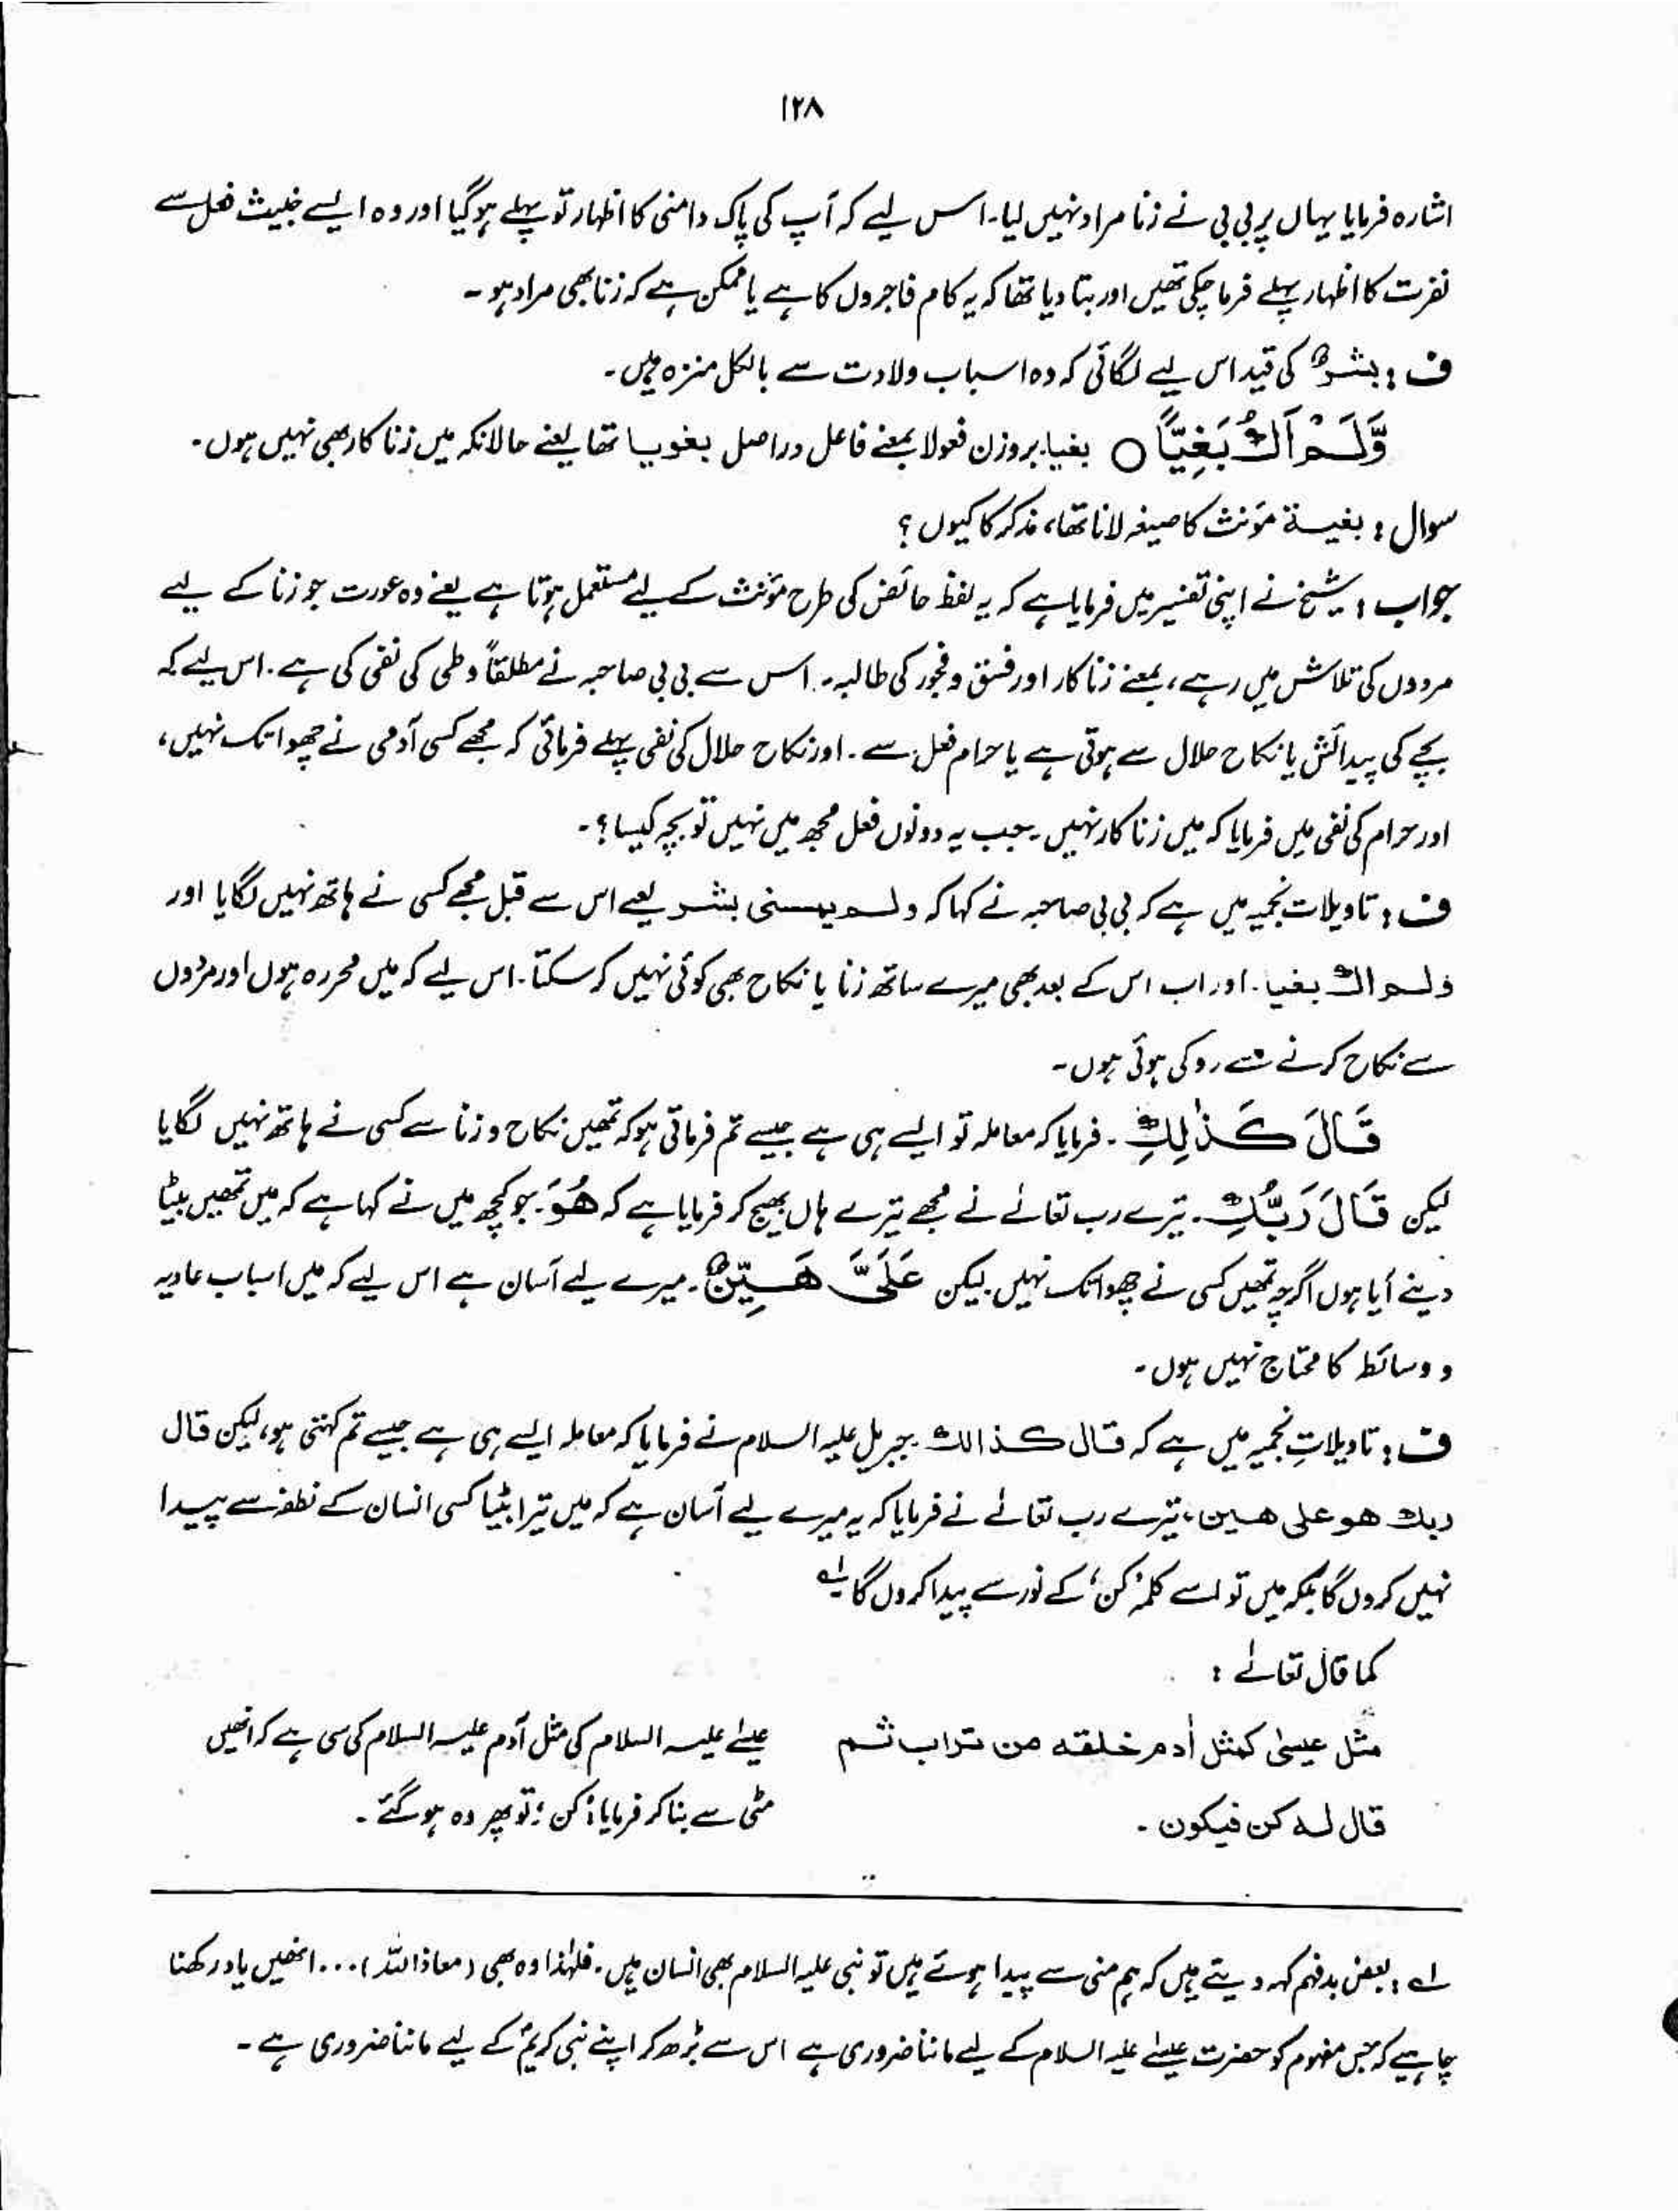 ۱۲۸
اشارہ فرمایا یہاں پر بی بی نے زنا مراد نہیں لیا۔ اس لیے کہ آپ کی پاک دامنی کا اظہار تو پہلے ہو گیا اور وہ ایسے خبیث فعل سے
نفرت کا اظہار پہلے فرما چکی تھیں اور بتا دیا تھا کہ یہ کام فاجروں کا ہے یا ممکن ہے کہ زنا بھی مراد ہو۔
ف : بشر کی قید اس لیے لگائی کہ وہ اسباب ولادت سے بالکل منزہ ہیں۔
وَّلَمْ اَكُ بَغِيًّا ○ بغیا۔ بروزن فعولا بمعنے فاعل دراصل بغویا تھا یعنے حالانکہ میں زنا کار بھی نہیں ہوں۔
سوال : بغیۃ مؤنث کا صیغہ لانا تھا، مذکر کا کیوں ؟
جواب : شیخ نے اپنی تفسیر میں فرمایا ہے کہ یہ لفظ حائض کی طرح مؤنث کے لیے مستعمل ہوتا ہے یعنے وہ عورت جو زنا کے لیے
مردوں کی تلاش میں رہے، بمعنے زنا کار اور فسق و فجور کی طالبہ۔ اس سے بی بی صاحبہ نے مطلقاً وطی کی نفی کی ہے۔ اس لیے کہ
بچے کی پیدائش یا نکاح حلال سے ہوتی ہے یا حرام فعل سے۔ اور نکاح حلال کی نفی پہلے فرمائی کہ مجھے کسی آدمی نے چھوا تک نہیں،
اور حرام کی نفی میں فرمایا کہ میں زنا کار نہیں۔ جب یہ دونوں فعل مجھ میں نہیں تو بچہ کیسا ؟۔
ف : تاویلات نجمیہ میں ہے کہ بی بی صاحبہ نے کہا کہ ولم یمسسنی بشر یعے اس سے قبل مجھے کسی نے ہاتھ نہیں لگایا اور
ولم اك بغیا۔ اور اب اس کے بعد بھی میرے ساتھ زنا یا نکاح بھی کوئی نہیں کر سکتا۔ اس لیے کہ میں محررہ ہوں اور مردوں
سے نکاح کرنے سے روکی ہوئی ہوں۔
قَالَ كَذٰلِكِ۔ فرمایا کہ معاملہ تو ایسے ہی ہے جیسے تم فرماتی ہو کہ تمھیں نکاح و زنا سے کسی نے ہاتھ نہیں لگایا
لیکن قَالَ رَبُّكِ۔ تیرے رب تعالےٰ نے مجھے تیرے ہاں بھیج کر فرمایا ہے کہ هُوَ۔ جو کچھ میں نے کہا ہے کہ میں تمھیں بیٹا
دینے آیا ہوں اگرچہ تمھیں کسی نے چھوا تک نہیں لیکن عَلَىَّ هَيِّنٌ۔ میرے لیے آسان ہے اس لیے کہ میں اسباب عادیہ
و وسائط کا محتاج نہیں ہوں۔
ف : تاویلاتِ نجمیہ میں ہے کہ قال کذالك جبریل علیہ السلام نے فرمایا کہ معاملہ ایسے ہی ہے جیسے تم کہتی ہو، لیکن قال
ربك هو علی هین، تیرے رب تعالےٰ نے فرمایا کہ یہ میرے لیے آسان ہے کہ میں تیرا بیٹا کسی انسان کے نطفہ سے پیدا
نہیں کروں گا بلکہ میں تو اسے کلمہ 'کن' کے نور سے پیدا کروں گا۔ لے
کما قال تعالےٰ :
مثل عیسیٰ کمثل اٰدم خلقه من تراب ثم
قال له کن فیکون۔
عیسےٰ علیہ السلام کی مثل آدم علیہ السلام کی سی ہے کہ انھیں
مٹی سے بنا کر فرمایا : 'کن' ؛ تو پھر وہ ہو گئے۔
لے : بعض بدفہم کہہ دیتے ہیں کہ ہم منی سے پیدا ہوئے ہیں تو نبی علیہ السلام بھی انسان ہیں۔ فلہٰذا وہ بھی (معاذ اللہ) ... انھیں یاد رکھنا
چاہیے کہ جس مفہوم کو حضرت عیسےٰ علیہ السلام کے لیے ماننا ضروری ہے اس سے بڑھ کر اپنے نبی کریم ؐ کے لیے ماننا ضروری ہے۔